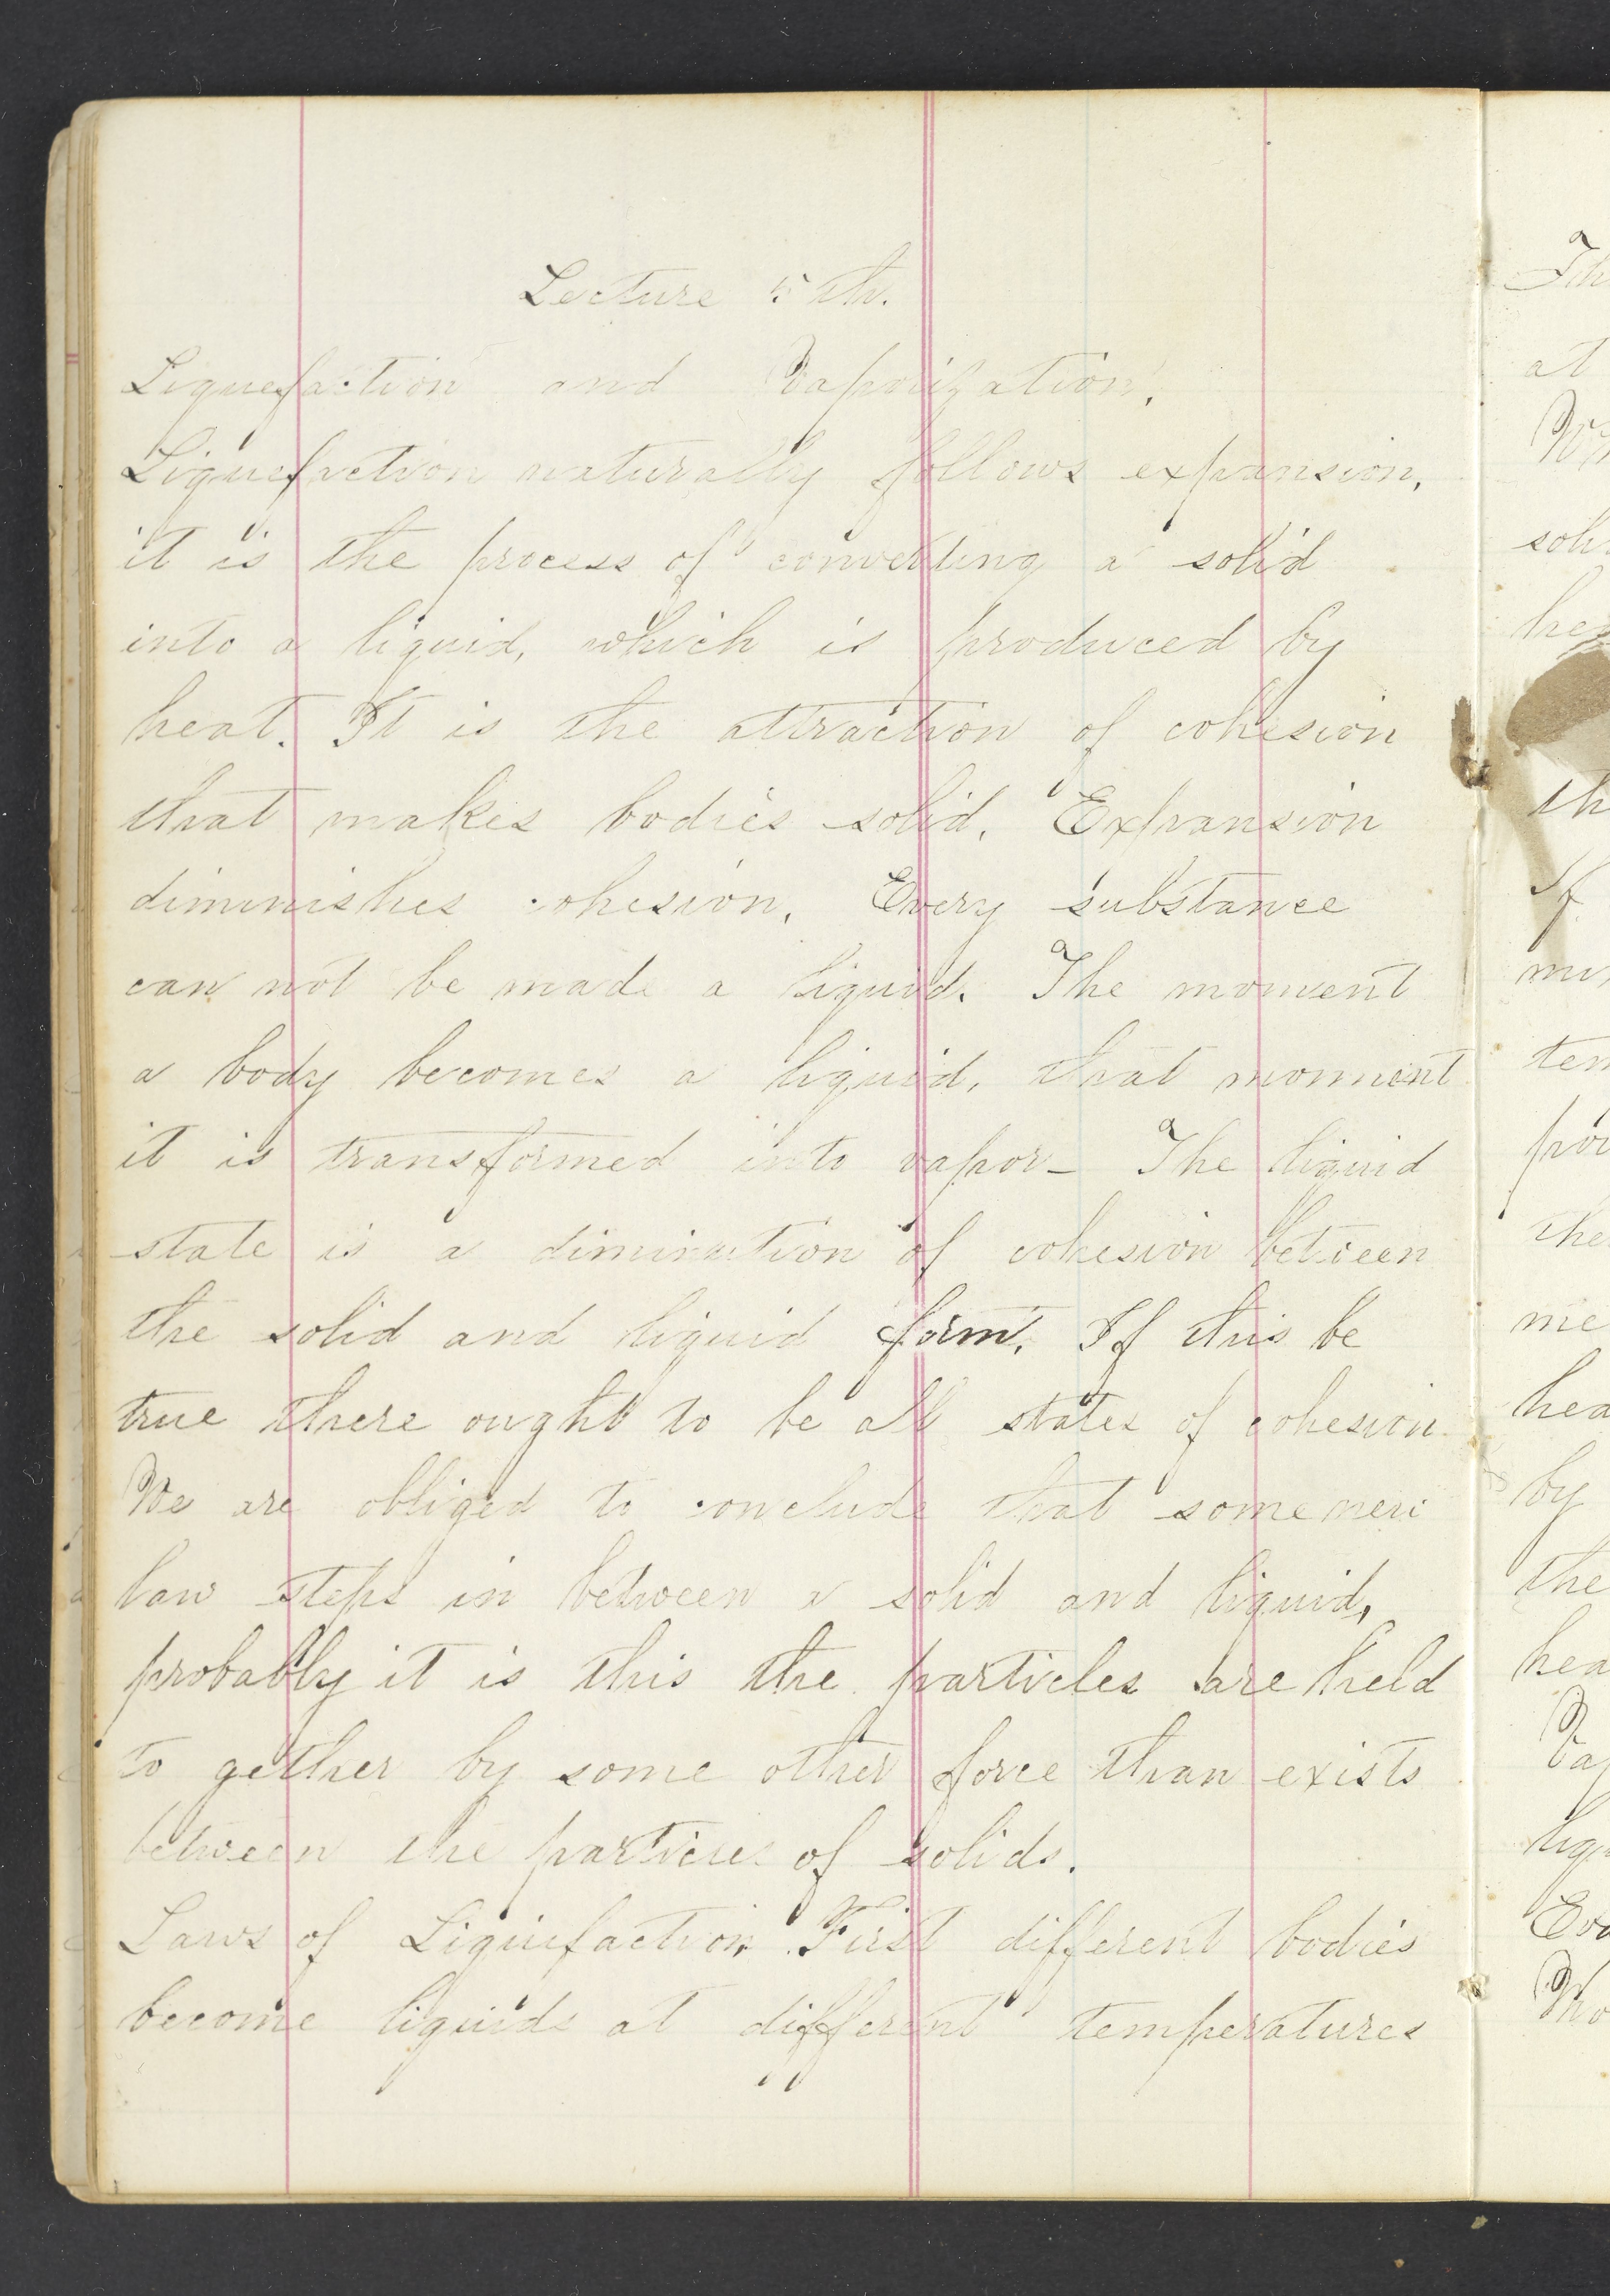 Lecture 5th.
Liquefaction and Vaporization.
Liquefaction naturally follows expansion,
it is the process of converting a solid
into a liquid, which is produced by
heat. It is the attraction of cohesion
that makes bodies solid. Expansion
diminishes cohesion. Every substance
can not be made a liquid. The moment
a body becomes a liquid, that moment
it is transformed into vapor- The liquid
state is a diminution of cohesion between
the solid and liquid form. If this be
true there ought to be all states of cohesion
We are obliged to conclude that some new
law steps in between a solid and liquid,
probably it is this the particles are held
to gether by some other force than exists
between the particles of solids.
Laws of Liquefaction First different bodies
become liquids at different temperatures
at
the
by
the